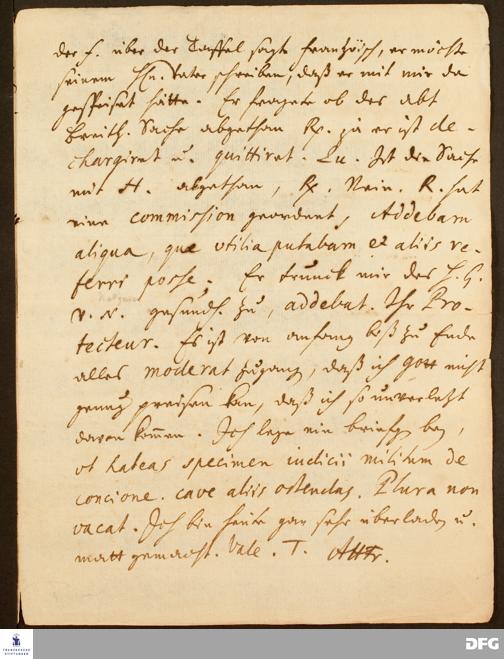 der h. über der Taffel sagte frantzösisch, er möchte
seinem Hn. Vater schreiben, daß er mit mir da
gespeiset hätte. Er fragete ob des abt
Breith. Sache abgethan Rx. ja er ist de-
chargiret u. quittiret. Qu. Ist die Sache
mit H. abgethan, Rx. Nein. R. hat
eine commission geordent, Addebam
aliqua, quae utilia putabam et aliis re-
ferri posse. Er trunck mir des H. G.
v. N. gesundh. zu, addebat. Ihr Pro-
tecteur. Es ist von anfang biß zu Ende
alles moderat zugang, daß ich gott nicht
genug preisen kan, daß ich so unverletzt
davon kommen. Ich lege ein briefg. bey,
ut habeas specimen iudicii militum de
concione. cave aliis ostendas. Plura non
vacat. Ich bin heute gar sehr überladen u.
matt gemacht. Vale. T. AHFr.
FRANCKESCHE STIFTUNGEN
DFG